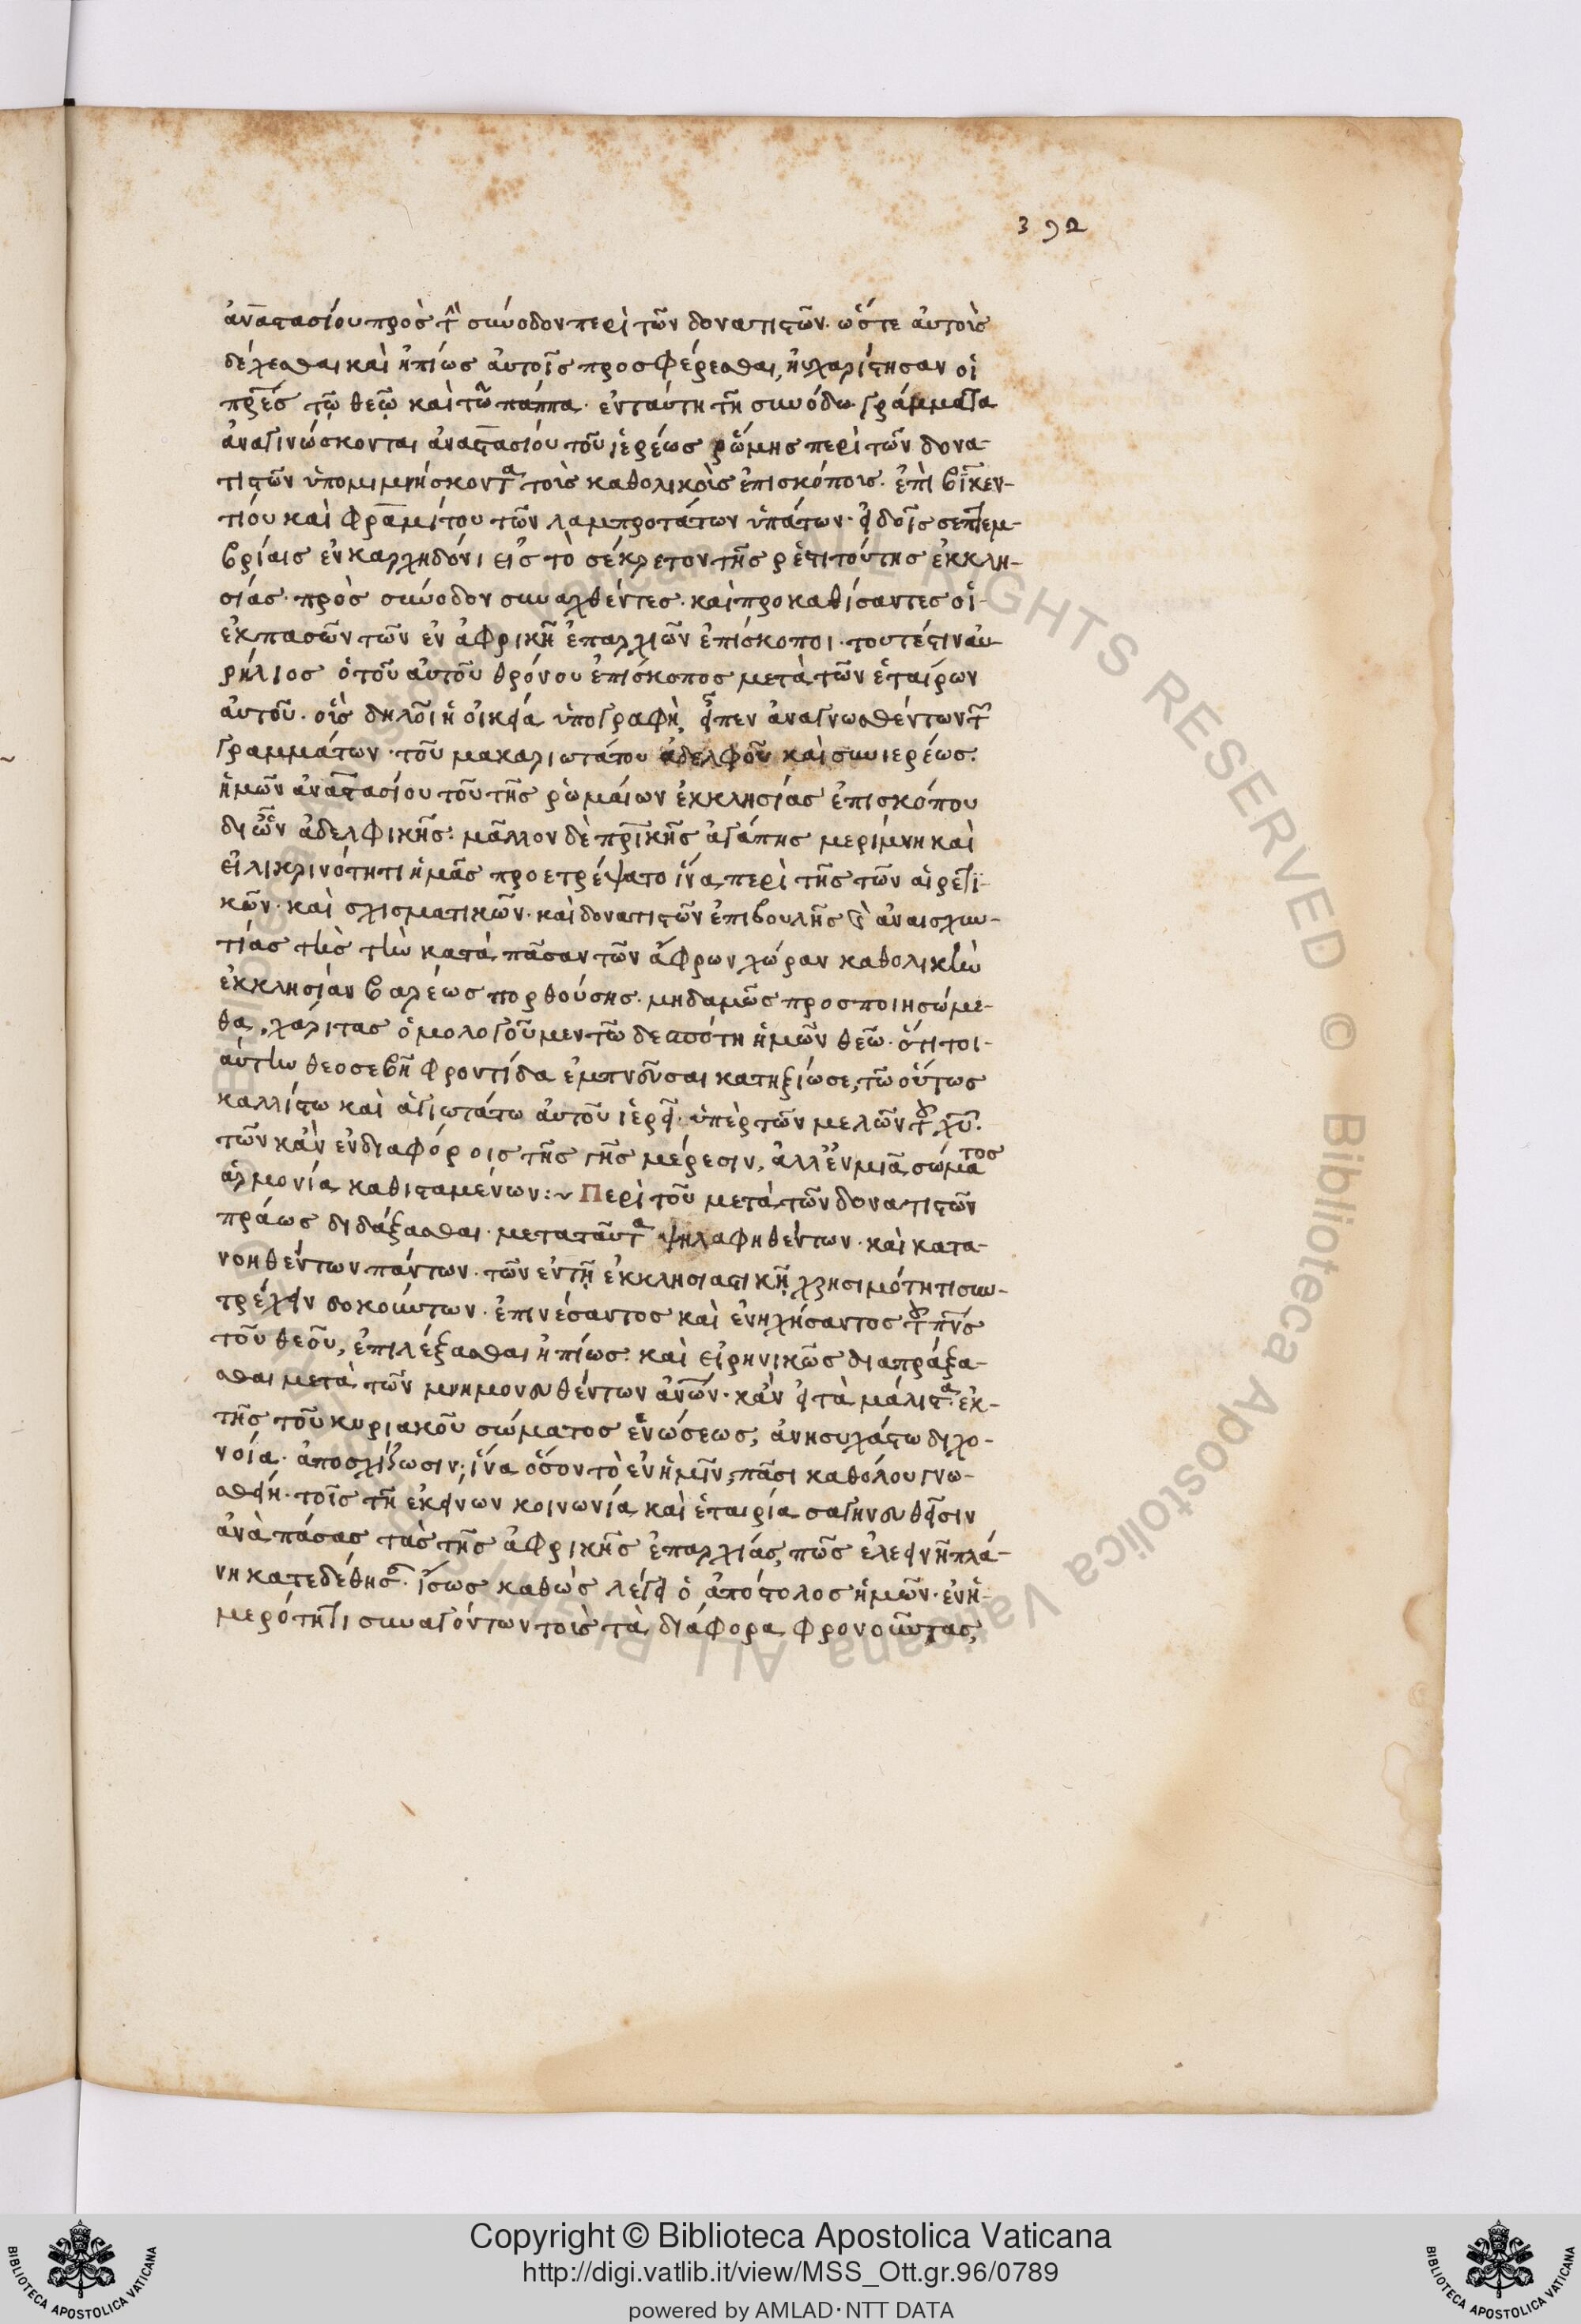 392
ἀναστασίου πρὸς τὴν σύνοδον περὶ τῶν δονατιστῶν· ὥστε αὐτοῖς
δέχεσθαι καὶ ἠπίως αὐτοῖς προσφέρεσθαι, ηὐχαρίστησαν οἱ
πρ̅ες τῷ θεῷ καὶ τῷ πάππα· ἐν ταύτη τῆ συνόδω γράμματα
ἀναγινώσκονται ἀναστασίου τοῦ ἱερέως ῥώμης περὶ τῶν δονα-
τιστῶν ὑπομιμνήσκοντα τοῖς καθολικοῖς ἐπισκόποις. ἐπὶ βικεν-
τίου καὶ φραμίτου τῶν λαμπροτάτων ὑπάτων· εἰδοῖς σεπτεμ-
βρίαις ἐν καρχηδόνι εἰς τὸ σέκρετον τῆς ῥεστιτούτης ἐκκλη-
σίας· πρὸς σύνοδον συναχθέντες· καὶ προκαθίσαντες οἱ
ἐκ πασῶν τῶν ἐν ἀφρικῆ ἐπαρχιῶν ἐπίσκοποι· τουτέστιν αὐ-
ρήλιος ὁ τοῦ αὐτοῦ θρόνου ἐπίσκοπος μετὰ τῶν ἑταίρων
αὐτοῦ· οἷς δηλοῖ ἡ οἰκεία ὑπογραφὴ, εἶπεν ἀναγνωσθέντων τῶν
γραμμάτων· τοῦ μακαριωτάτου ἀδελφοῦ καὶ συνιερέως·
ἡμῶν ἀναστασίου τοῦ τῆς ῥωμαίων ἐκκλησίας ἐπισκόπου
δι ὧν ἀδελφικῆς· μᾶλλον δὲ πρ̅ικῆς ἀγάπης μερίμνη καὶ
εἰλικρινότητι ἡμᾶς προετρέψατο ἵνα περὶ τῆς τῶν αἱρετι-
κῶν· καὶ σχισματικῶν· καὶ δονατιστῶν ἐπιβουλῆς καὶ ἀναισχυν-
τίας τῆς τὴν κατὰ πᾶσαν τῶν ἄφρων χώραν καθολικὴν
ἐκκλησίαν βαρέως πορθούσης· μηδαμῶς προσποιησώμε-
θα, χάριτας ὁμολογοῦμεν τῶ δεσπότη ἡμῶν θεῶ· ὅτι τοι-
αύτην θεοσεβῆ φροντίδα ἐμπνεῦσαι κατηξίωσε, τῶ οὕτως
καλλίστω καὶ ἁγιωτάτω αὐτοῦ ἱερεῖ· ὑπὲρ τῶν μελῶν τοῦ χ̅υ·
τῶν κἂν ἐν διαφόροις τῆς γῆς μέρεσιν, ἀλλ ἐν μιᾶ σώματος
ἁρμονία καθισταμένων:~ Περὶ τοῦ μετὰ τῶν δονατιστῶν
πράως διδάξασθαι· μετα ταῦτα ψηλαφηθέντων· καὶ κατα-
νοηθέντων πάντων· τῶν ἐν τῆ ἐκκλησιαστικῆ χρησιμότητι συν-
τρέχειν δοκούντων· ἐπινεύσαντος καὶ ἐνηχήσαντος τοῦ πν̅ς
τοῦ θεοῦ, ἐπιλέξασθαι ἠπίως· καὶ εἰρηνικῶς διαπράξα-
σθαι μετὰ τῶν μνημονευθέντων ἀν̅ων· κἂν εἰ τὰ μάλιστα ἐκ
τῆς τοῦ κυριακοῦ σώματος ἑνώσεως, ἀνησυχάστω διχο-
νοία· ἀποσχίζωσιν, ἵνα ὅσον τὸ ἐν ἡμῖν, πᾶσι καθόλου γνω-
σθείη· τοῖς τῆ ἐκείνων κοινωνία καὶ ἑταιρία σαγηνευθεῖσιν
ἀνὰ πάσας τὰς τῆς ἀφρικῆς ἐπαρχίας, πῶς ἐλεεινῆ πλά-
νη κατεδέθησαν· ἴσως καθὼς λέγει ὁ ἀπόστολος ἡμῶν· ἐν ἡ-
μερότητι συναγόντων τοὺς τὰ διάφορα φρονοῦντας,
Copyright © Biblioteca Apostolica Vaticana
http://digi.vatlib.it/view/MSS_Ott.gr.96/0789
powered by AMLAD·NTT DATA
BIBLIOTECA APOSTOLICA VATICANA
BIBLIOTECA APOSTOLICA VATICANA